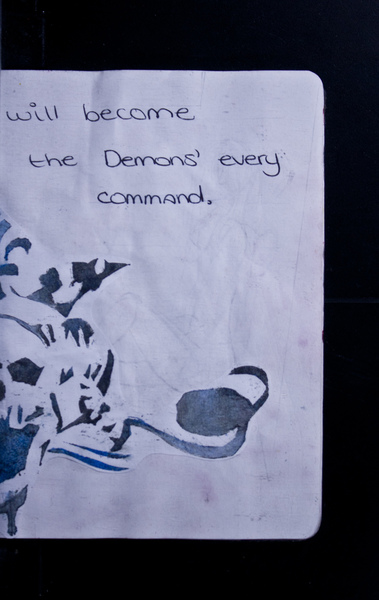 will become
the Demons' every
command.